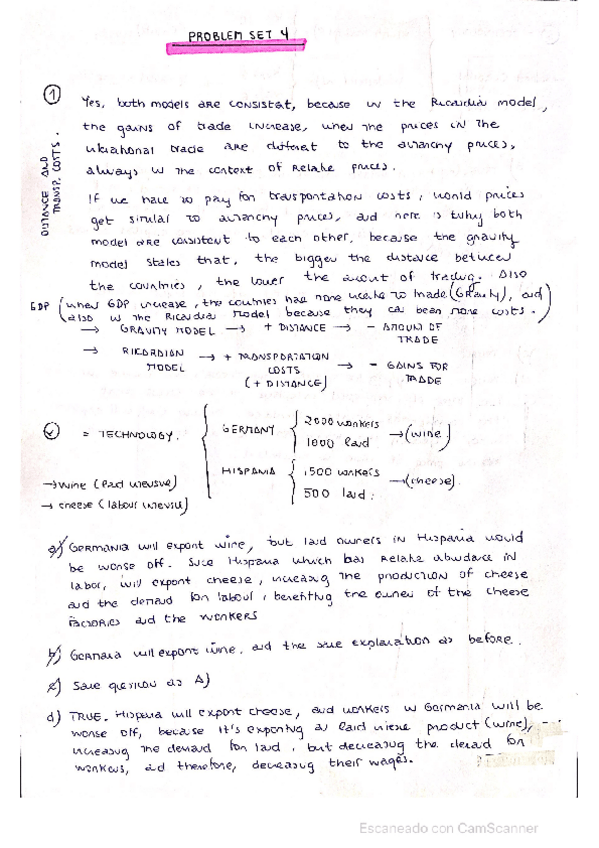 PROBLEM SET 4
① Yes, both models are consistat, because in the Ricardian model,
the gains of trade increase, when the prices in the
international trade are different to the autarchy prices,
always in the context of relative prices.
DISTANCE AND
TRANSP. COSTS.
If we have to pay for transportation costs, world prices
get similar to autarchy prices, and here is why both
model are consistent to each other, because the gravity
model states that, the bigger the distance between
the countries, the lower the amount of trading. Also
GDP (when GDP increase, the countries has more to trade (Gravity), and
also in the Ricardian model because they can bean more costs.)
→ GRAVITY MODEL → + DISTANCE → - AMOUNT OF
TRADE
→ RICARDIAN
MODEL → + TRANSPORTATION
COSTS
(+ DISTANCE) → - GAINS FOR
TRADE
② = TECHNOLOGY.
GERMANY 2000 workers
1000 land → (wine)
HISPANIA 1500 workers
500 land. → (cheese).
→ wine (land intensive)
→ cheese (labour intensive)
a) Germania will export wine, but land owners in Hispania would
be worse off. Since Hispania which has relative abundance in
labor, will export cheese, increasing the production of cheese
and the demand for labour, benefiting the owner of the cheese
factories and the workers
b) Germania will export wine. and the same explanation as before.
c) Same question as A)
d) TRUE. Hispania will export cheese, and workers in Germania will be
worse off, because it's exporting a land product (wine),
increasing the demand for land, but decreasing the demand for
workers, and therefore, decreasing their wages.
Escaneado con CamScanner